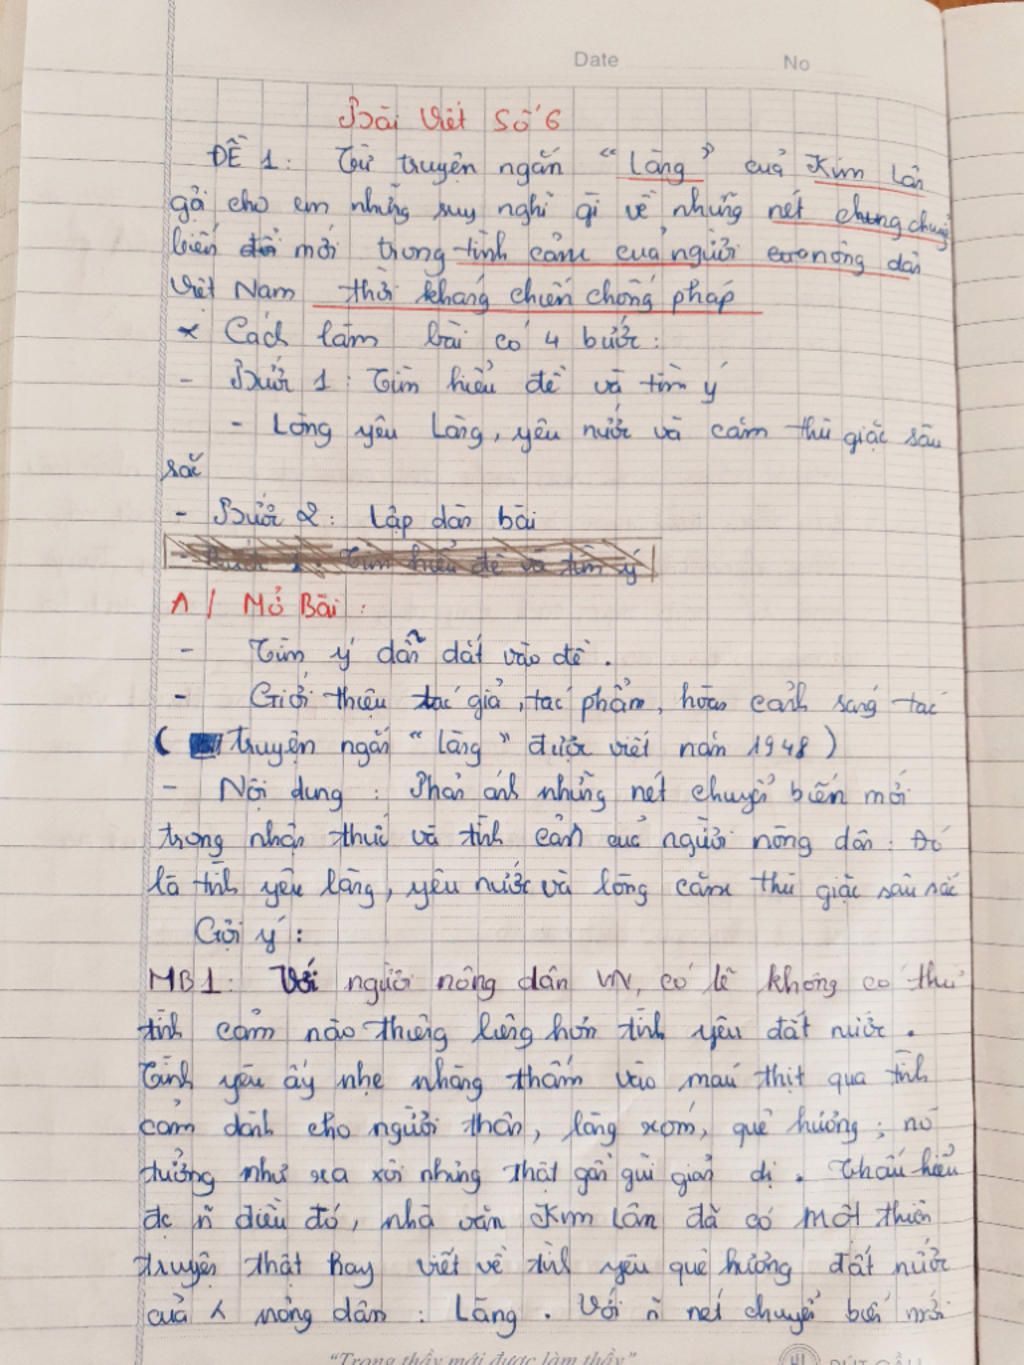 Date No
Bài Viết Số 6
ĐỀ 1: Từ truyện ngắn "Làng" của Kim Lân
gợi cho em những suy nghĩ gì về những nét chung chuyển
biến đổi mới trong tình cảm của người nông dân
Việt Nam thời kháng chiến chống pháp
* Cách làm bài có 4 bước:
- Bước 1: Tìm hiểu đề và tìm ý
- Lòng yêu Làng, yêu nước và căm thù giặc sâu
sắc
- Bước 2: Lập dàn bài
- Bước 1: Tìm hiểu đề và tìm ý
A / Mở Bài:
- Tìm ý dẫn dắt vào đề.
- Giới thiệu tác giả, tác phẩm, hoàn cảnh sáng tác
( truyện ngắn "làng" được viết năm 1948)
- Nội dung: Phản ánh những nét chuyển biến mới
trong nhận thức và tình cảm của người nông dân: Đó
là tình yêu làng, yêu nước và lòng căm thù giặc sâu sắc
Gợi ý:
MB1: Với người nông dân VN, có lẽ không có thứ
tình cảm nào thiêng liêng hơn tình yêu đất nước.
Tình yêu ấy nhẹ nhàng thấm vào máu thịt qua tình
cảm dành cho người thân, làng xóm, quê hương; nó
tưởng như xa xôi nhưng thật gần gũi giản dị. Thấu hiểu
đc ~n điều đó, nhà văn Kim Lân đã có một thiên
truyện thật hay viết về tình yêu quê hương đất nước
của λ nông dân: Làng. Với ~n nét chuyển biến mới
"Trong thầy mới được làm thầy"